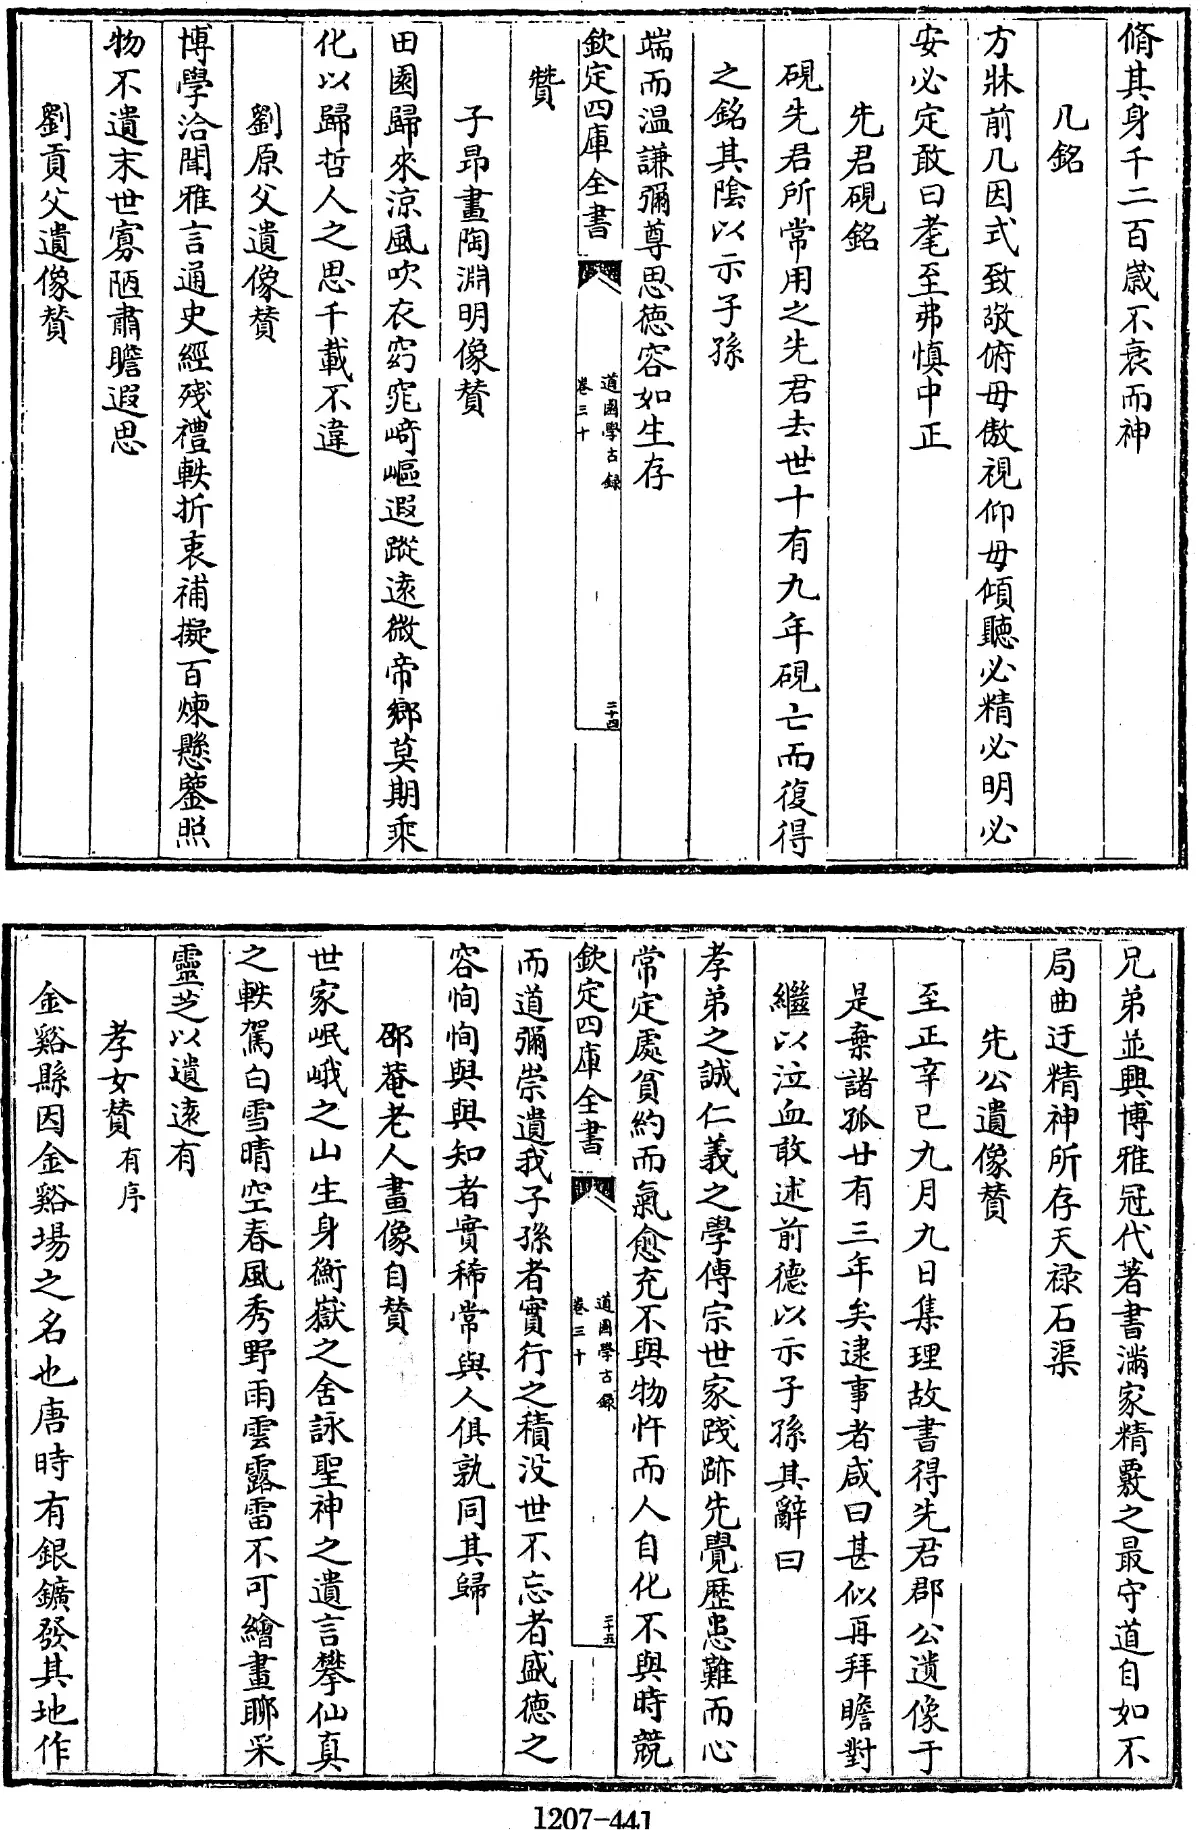 脩其身千二百歲不衰而神
几銘
方牀前几因式致敬俯毋傲視仰毋傾聽必精必明必
安必定敢曰耄至弗慎中正
先君硯銘
硯先君所常用之先君去世十有九年硯亡而復得
之銘其陰以示子孫
端而温謙彌尊思德容如生存
欽定四庫全書
道園學古錄
卷三十
三十四
贊
子昂畫陶淵明像賛
田園歸來涼風吹衣窈窕崎嶇遐蹤遠微帝鄉莫期乘
化以歸哲人之思千載不違
劉原父遺像賛
博學洽聞雅言通史經殘禮軼折衷補擬百煉懸鑒照
物不遺末世寡陋肅瞻遐思
劉貢父遺像賛
兄弟並興博雅冠代著書滿家精覈之最守道自如不
局曲迂精神所存天禄石渠
先公遺像賛
至正辛巳九月九日集理故書得先君郡公遺像于
是棄諸孤廿有三年矣逮事者咸曰甚似再拜瞻對
繼以泣血敢述前德以示子孫其辭曰
孝弟之誠仁義之學傳宗世家踐跡先覺歷患難而心
常定處貧約而氣愈充不與物忤而人自化不與時競
欽定四庫全書
道園學古錄
卷三十
三十五
而道彌崇遺我子孫者實行之積没世不忘者盛德之
容恂恂與與知者實稀常與人俱孰同其歸
邵菴老人畫像自賛
世家岷峨之山生身衡嶽之舍詠聖神之遺言攀仙真
之軼駕白雪晴空春風秀野雨雲露雷不可繪畫聊采
靈芝以遺遠有
孝女賛有序
金谿縣因金谿場之名也唐時有銀鑛發其地作
1207-441